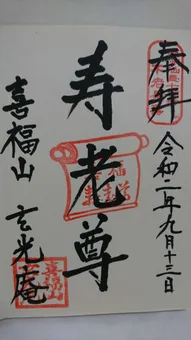 奉拝
令和二年九月十三日
寿老尊
喜福山 玄光庵
喜福山